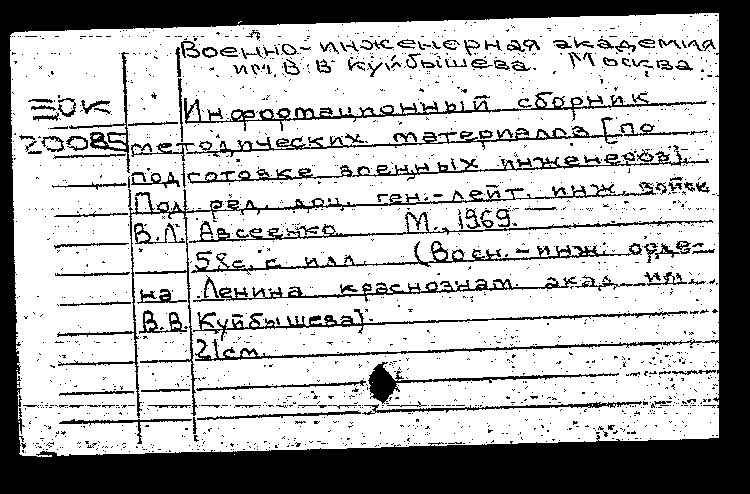 Военно-инженерная академия
им. В. В. Куйбышева. Москва
ЗОК
20085
Информационный сборник
методических материалов [по
подготовке военных инженеров].
Под ред. доц. ген.-лейт. инж. войск
В.Л. Авсеенко. М., 1969.
58 с. с илл. (Воен.-инж. орде-
на Ленина краснознам. акад. им.
В.В. Куйбышева).
21 см.